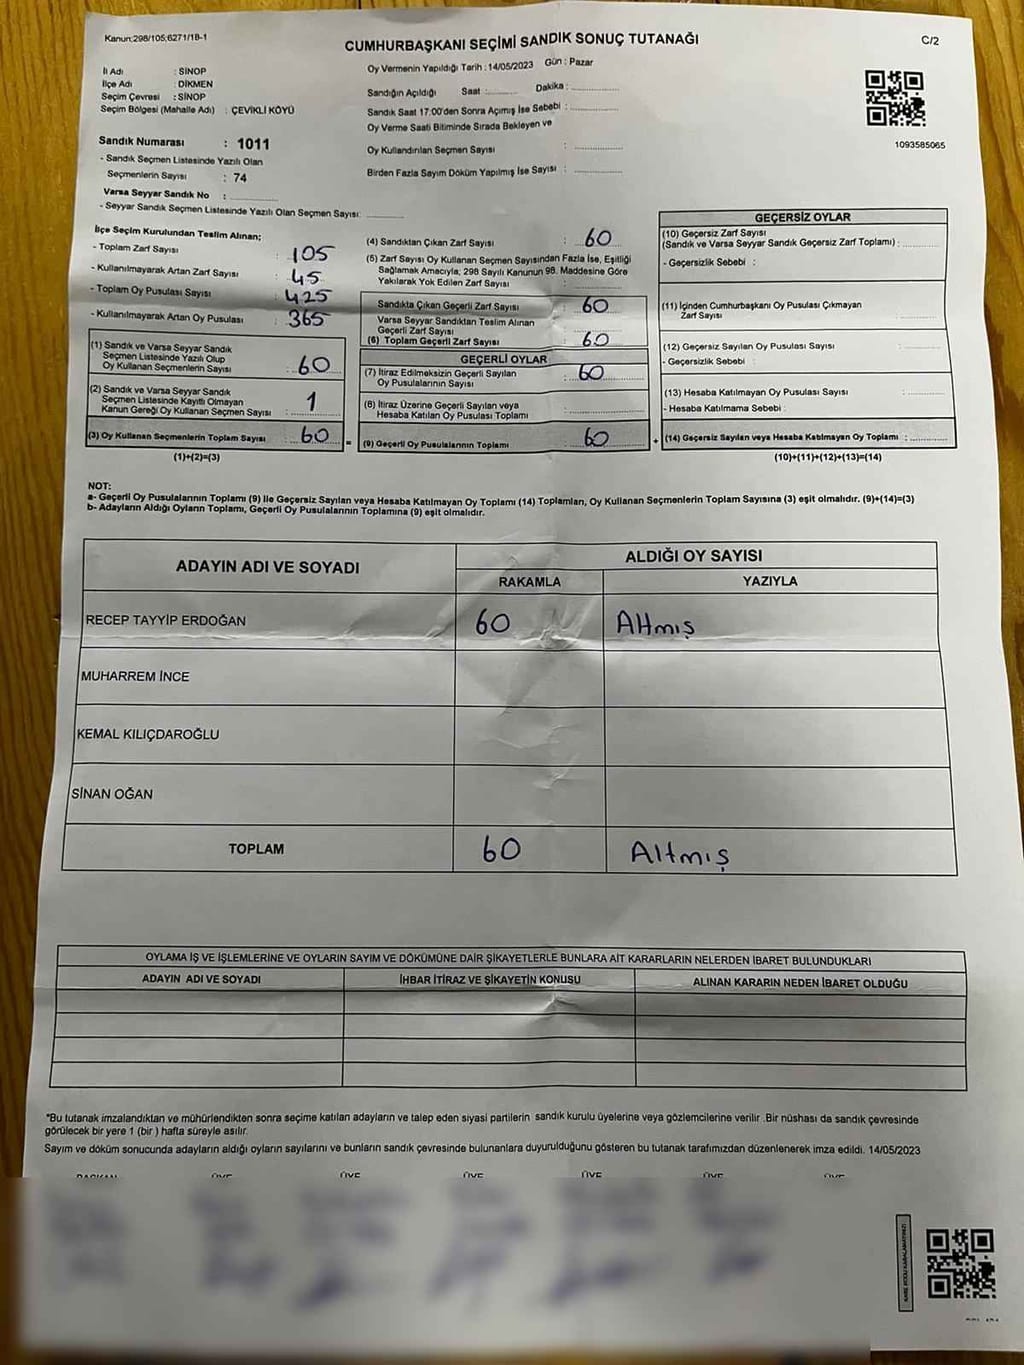 Kanun:298/105;6271/18-1
CUMHURBAŞKANI SEÇİMİ SANDIK SONUÇ TUTANAĞI
C/2
İl Adı : SİNOP
İlçe Adı : DİKMEN
Seçim Çevresi : SİNOP
Seçim Bölgesi (Mahalle Adı) : ÇEVİKLİ KÖYÜ
Oy Vermenin Yapıldığı Tarih : 14/05/2023 Gün : Pazar
Sandığın Açıldığı Saat :.......... Dakika :..............
Sandık Saat 17:00'den Sonra Açımış İse Sebebi :..............
Oy Verme Saati Bitiminde Sırada Bekleyen ve
Oy Kullandırılan Seçmen Sayısı : ..............
Birden Fazla Sayım Döküm Yapılmış İse Sayısı : ..............
1093585065
Sandık Numarası : 1011
- Sandık Seçmen Listesinde Yazılı Olan
Seçmenlerin Sayısı : 74
Varsa Seyyar Sandık No : ..............
- Seyyar Sandık Seçmen Listesinde Yazılı Olan Seçmen Sayısı: ..........
İlçe Seçim Kurulundan Teslim Alınan;
- Toplam Zarf Sayısı : 105
- Kullanılmayarak Artan Zarf Sayısı : 45
- Toplam Oy Pusulası Sayısı : 425
- Kullanılmayarak Artan Oy Pusulası : 365
(1) Sandık ve Varsa Seyyar Sandık
Seçmen Listesinde Yazılı Olup
Oy Kullanan Seçmenlerin Sayısı : 60
(2) Sandık ve Varsa Seyyar Sandık
Seçmen Listesinde Kayıtlı Olmayan
Kanun Gereği Oy Kullanan Seçmen Sayısı : 1
(3) Oy Kullanan Seçmenlerin Toplam Sayısı : 60 =
(1)+(2)=(3)
(4) Sandıktan Çıkan Zarf Sayısı : 60
(5) Zarf Sayısı Oy Kullanan Seçmen Sayısından Fazla İse, Eşitliği
Sağlamak Amacıyla; 298 Sayılı Kanunun 98. Maddesine Göre
Yakılarak Yok Edilen Zarf Sayısı : ..............
Sandıkta Çıkan Geçerli Zarf Sayısı : 60
Varsa Seyyar Sandıktan Teslim Alınan
Geçerli Zarf Sayısı : ..............
(6) Toplam Geçerli Zarf Sayısı : 60
GEÇERLİ OYLAR
(7) İtiraz Edilmeksizin Geçerli Sayılan
Oy Pusulalarının Sayısı : 60
(8) İtiraz Üzerine Geçerli Sayılan veya
Hesaba Katılan Oy Pusulası Toplamı : ..............
(9) Geçerli Oy Pusulalarının Toplamı : 60 +
GEÇERSİZ OYLAR
(10) Geçersiz Zarf Sayısı
(Sandık ve Varsa Seyyar Sandık Geçersiz Zarf Toplamı) : ..........
- Geçersizlik Sebebi :
(11) İçinden Cumhurbaşkanı Oy Pusulası Çıkmayan
Zarf Sayısı : ..........
(12) Geçersiz Sayılan Oy Pusulası Sayısı : ..........
- Geçersizlik Sebebi :
(13) Hesaba Katılmayan Oy Pusulası Sayısı : ..........
- Hesaba Katılmama Sebebi :
(14) Geçersiz Sayılan veya Hesaba Katılmayan Oy Toplamı : ..........
(10)+(11)+(12)+(13)=(14)
NOT:
a- Geçerli Oy Pusulalarının Toplamı (9) ile Geçersiz Sayılan veya Hesaba Katılmayan Oy Toplamı (14) Toplamları, Oy Kullanan Seçmenlerin Toplam Sayısına (3) eşit olmalıdır. (9)+(14)=(3)
b- Adayların Aldığı Oyların Toplamı, Geçerli Oy Pusulalarının Toplamına (9) eşit olmalıdır.
ADAYIN ADI VE SOYADI
ALDIĞI OY SAYISI
RAKAMLA YAZIYLA
RECEP TAYYİP ERDOĞAN 60 Altmış
MUHARREM İNCE
KEMAL KILIÇDAROĞLU
SİNAN OĞAN
TOPLAM 60 Altmış
OYLAMA İŞ VE İŞLEMLERİNE VE OYLARIN SAYIM VE DÖKÜMÜNE DAİR ŞİKAYETLERLE BUNLARA AİT KARARLARIN NELERDEN İBARET BULUNDUKLARI
ADAYIN ADI VE SOYADI İHBAR İTİRAZ VE ŞİKAYETİN KONUSU ALINAN KARARIN NEDEN İBARET OLDUĞU
*Bu tutanak imzalandıktan ve mühürlendikten sonra seçime katılan adayların ve talep eden siyasi partilerin sandık kurulu üyelerine veya gözlemcilerine verilir .Bir nüshası da sandık çevresinde
görülecek bir yere 1 (bir ) hafta süreyle asılır.
Sayım ve döküm sonucunda adayların aldığı oyların sayılarını ve bunların sandık çevresinde bulunanlara duyurulduğunu gösteren bu tutanak tarafımızdan düzenlenerek imza edildi. 14/05/2023
BAŞKAN ÜYE ÜYE ÜYE ÜYE ÜYE ÜYE
KARE KODU KARALAMAYINIZ!